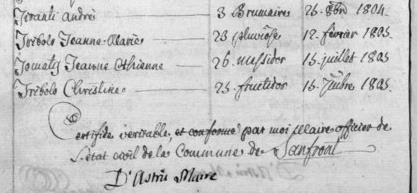 Giranti andré 3 Brumaire 25. 8bre 1804.
Tribolo Jeanne-Marie 23 pluviôse 12. février 1805.
Tomatis Jeanne Catherine 26. messidor 15. juillet 1805.
Tribolo Christine 25. fructidor 15. 7mbre 1805.
Certifiée véritable, et conforme par moi Maire officier de
l'état civil de la Commune de Sanfront
D'Astris Maire